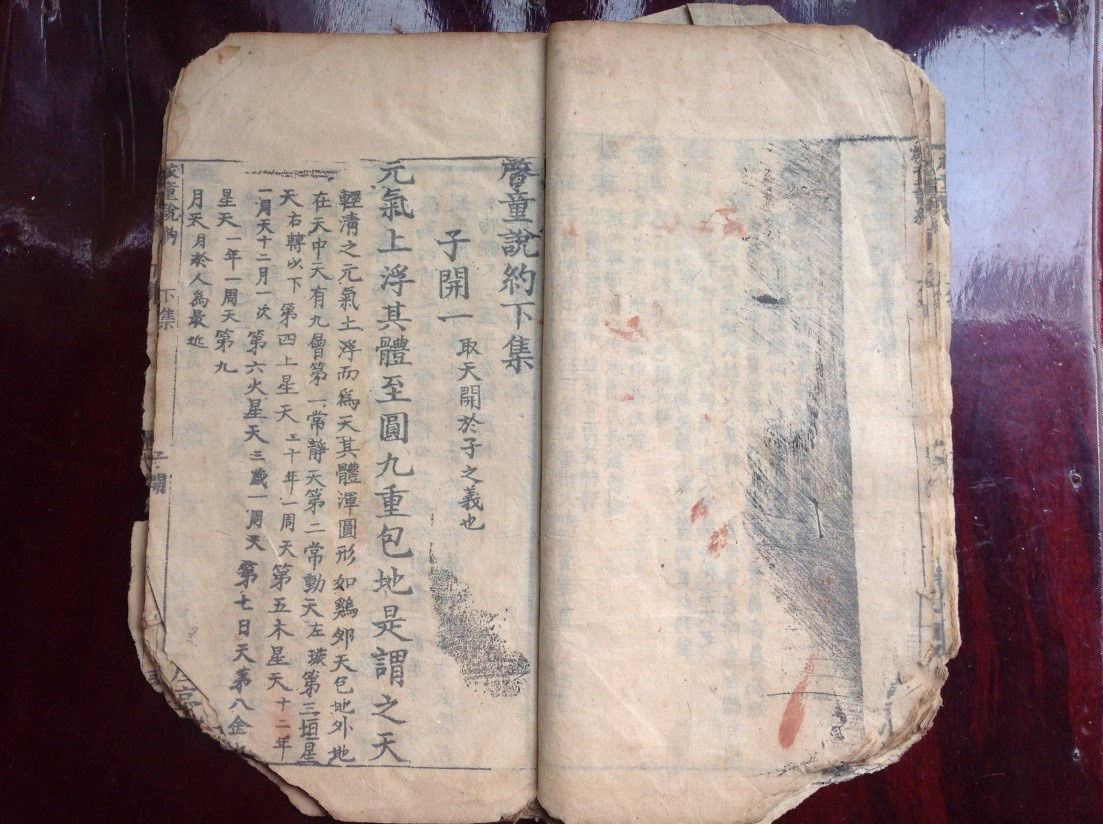 啓童說約下集
子開一 取天開於子之義也
元氣上浮其體至圓九重包地是謂之天
輕清之元氣上浮而爲天其體渾圓形如鷄卵天包地外地
在天中天有九層第一常靜天第二常動天左旋第三垣星
天右轉以下第四上星天二十年一周天第五木星天十二年
一周天十二月一次第六火星天三歲一周天第七日天第八金
星天一年一周天第九
月天月於人爲最近
啓童說約
下集
子開